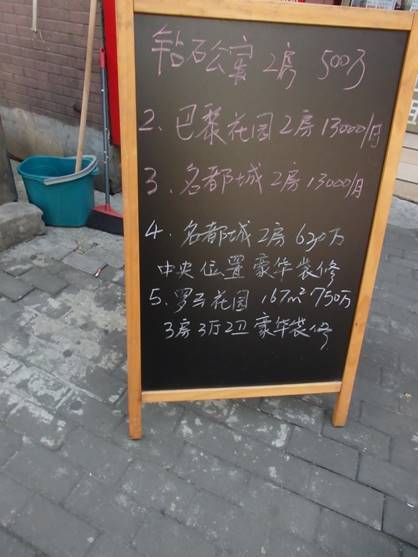 钻石公寓 2房 500万
2、巴黎花园2房13000/月
3、名都城2房13000/月
4、名都城2房620万
中央位置豪华装修
5、罗马花园 167m² 750万
3房3厅2卫豪华装修